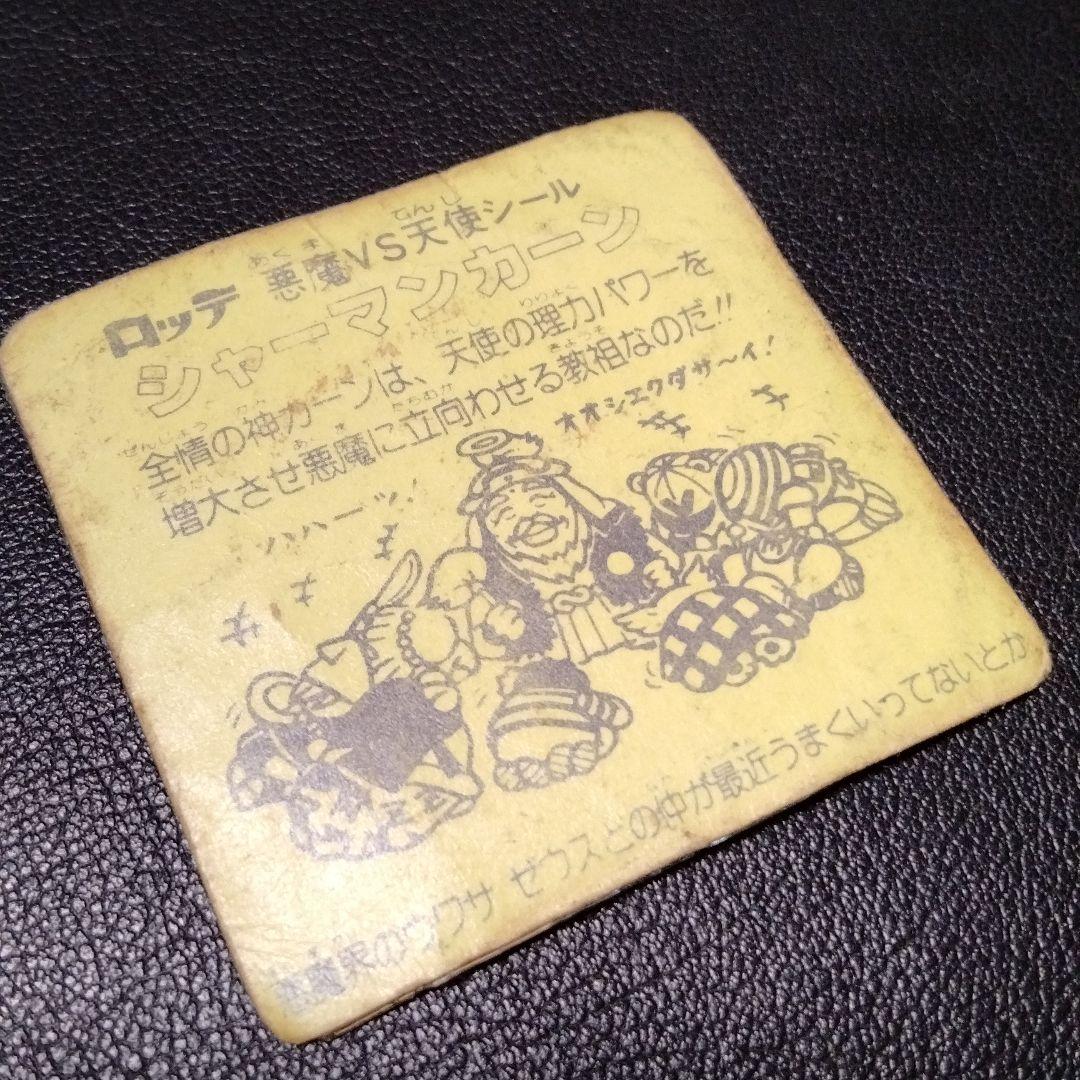 ロッテ 悪魔VS天使シール
シャーマンカーン
全情の神カーンは、天使の理力パワーを
増大させ悪魔に立向わせる教祖なのだ!!
オオシエクダサ〜イ!
ハハーッ!
サ
悪魔界のウワサ ゼウスとの仲が最近うまくいってないとか